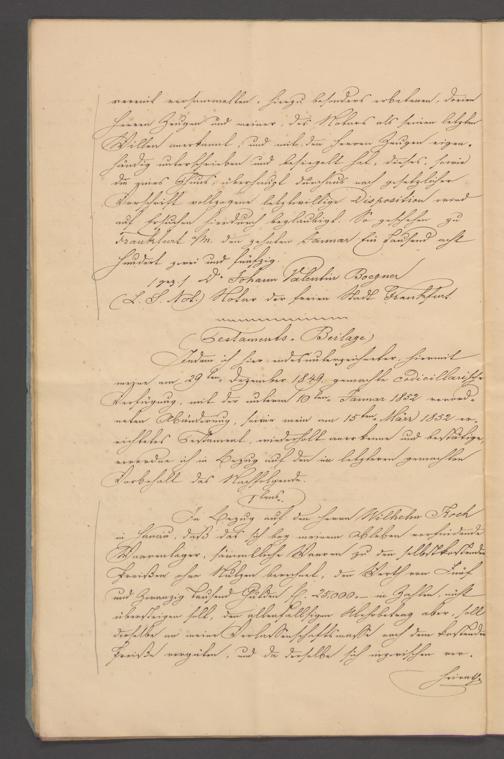 vereint versammelten, hiezu besonders erbetenen, deren
Herren Zeugen und meiner, des Notars als seinen letzten
Willen anerkannt, und mit den Herren Zeugen eigen-
händig unterschrieben und besiegelt hat, dieses, sowie
daß überhaupt durchaus nach gesetzlicher
Vorschrift vollzogene letztwillige Disposition werd
auf Ersuchen hierdurch beglaubigt. So geschehen zu
Frankfurt a/M. den zehnten Januar Ein tausend acht
hundert zwei und fünfzig.
/gez./ Dr. Johann Valentin Boegner
(L. S. Not.) Notar der freien Stadt Frankfurt
(Testaments-Beilage)
Indem ich hier endesunterzeichneter, hiermit
meine am 29ten Dezember 1849 gemachte codicillarische
Verfügung, mit der unterm 10ten Januar 1852
Abänderung, sowie mein am 15ten März 1852 er-
richtetes Testament, wiederholt anerkenne und bestätige,
verordne ich in Bezug auf den in letzterem gemachten
Vorbehalt das Nachfolgende.
In Bezug auf den Herrn Wilhelm Koch
in Hanau, daß das ich bey meinem Ableben
Waarenlager, sämmtliche Waaren zu den selbstkostenden
Preisen ohne Nutzen berechnet, den Werth von Fünf
und Zwanzig Tausend Gulden f. 25,000 in Zahlen, nicht
übersteigen soll, den allenfallsigen Mehrbetrag aber, soll
derselbe an meine Verlassenschaftsmasse nach dem kostenden
Preise vergüten, und da derselbe sich inzwischen ver-
heirathe